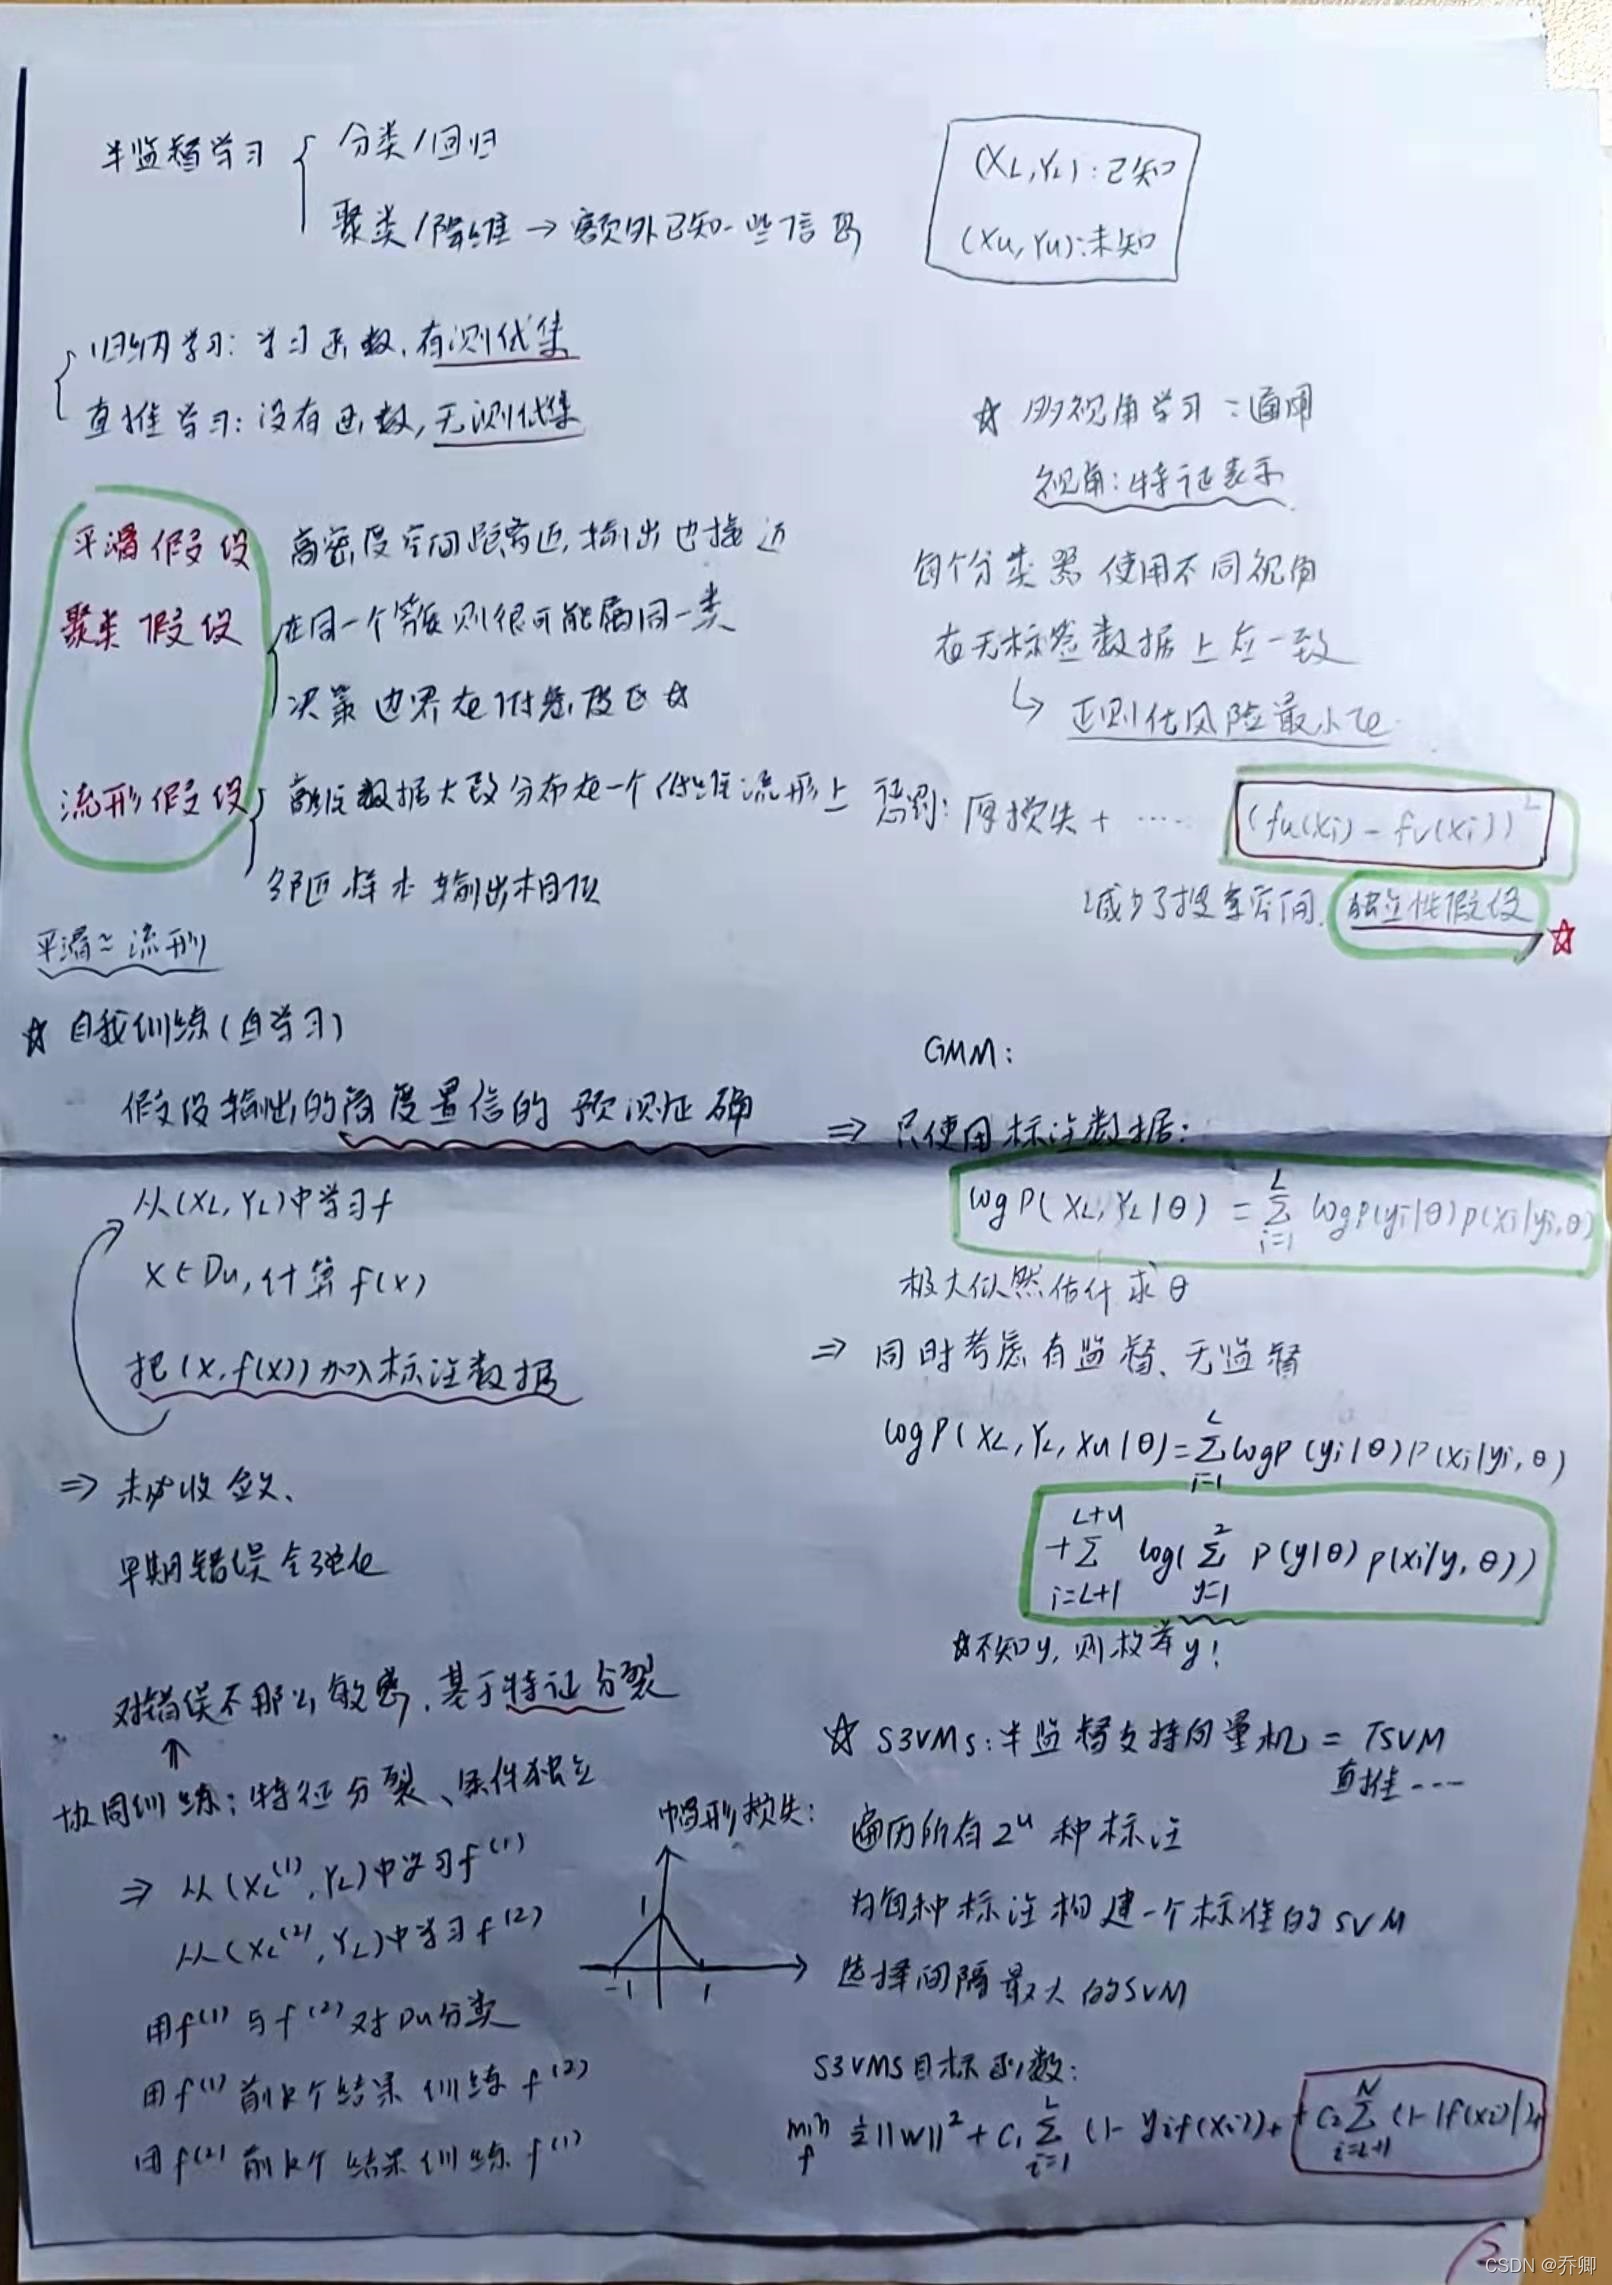 半监督学习 { 分类/回归
聚类/降维 → 额外已知一些信息
(XL,YL):已知
(Xu,Yu):未知
归纳学习: 学习函数,有测试集
直推学习: 没有函数,无测试集
平滑假设 高密度空间距离近,输出也接近
聚类假设 { 在同一个簇则很可能属同一类
决策边界在低密度区 ☆
流形假设 { 高维数据大致分布在一个低维流形上
邻近样本输出相似
平滑≈流形
☆ 自我训练(自学习)
假设输出的高度置信的预测正确
从(XL,YL)中学习f
X∈Du,计算f(x)
把(x,f(x))加入标注数据
⇒ 未必收敛、
早期错误会强化
对错误不那么敏感,基于特征分裂
↑
协同训练:特征分裂、条件独立
⇒ 从(XL⁽¹⁾,YL)中学习f⁽¹⁾
从(XL⁽²⁾,YL)中学习f⁽²⁾
用f⁽¹⁾与f⁽²⁾对Du分类
用f⁽¹⁾前k个结果训练f⁽²⁾
用f⁽²⁾前k个结果训练f⁽¹⁾
☆ 多视角学习:通用
视角:特征表示
每个分类器使用不同视角
在无标签数据上应一致
↳ 正则化风险最小化
惩罚: 原损失 + ····· (fu(xi) - fv(xi))²
减少了搜索空间. 独立性假设 ☆
GMM:
⇒ 只使用标注数据:
log P(XL,YL|θ) = Σ_{i=1}^{L} log P(yi|θ)p(xi|yi,θ)
极大似然估计求θ
⇒ 同时考虑有监督、无监督
log P(XL,YL,Xu|θ) = Σ_{i=1}^{L} log P(yi|θ)P(xi|yi,θ)
+ Σ_{i=L+1}^{L+u} log( Σ_{y=1}^{2} P(y|θ) p(xi|y,θ))
☆不知y,则枚举y!
☆ S3VMs:半监督支持向量机 = TSVM
直推----
遍历所有2ᵘ种标注
为每种标注构建一个标准的SVM
选择间隔最大的SVM
帽形损失:
1
-1 1
S3VMS目标函数:
min_f ½||W||² + C₁ Σ_{i=1}^{L} (1-yif(xi))₊ + C₂ Σ_{i=L+1}^{N} (1-|f(xi)|)₊
2
CSDN @乔卿